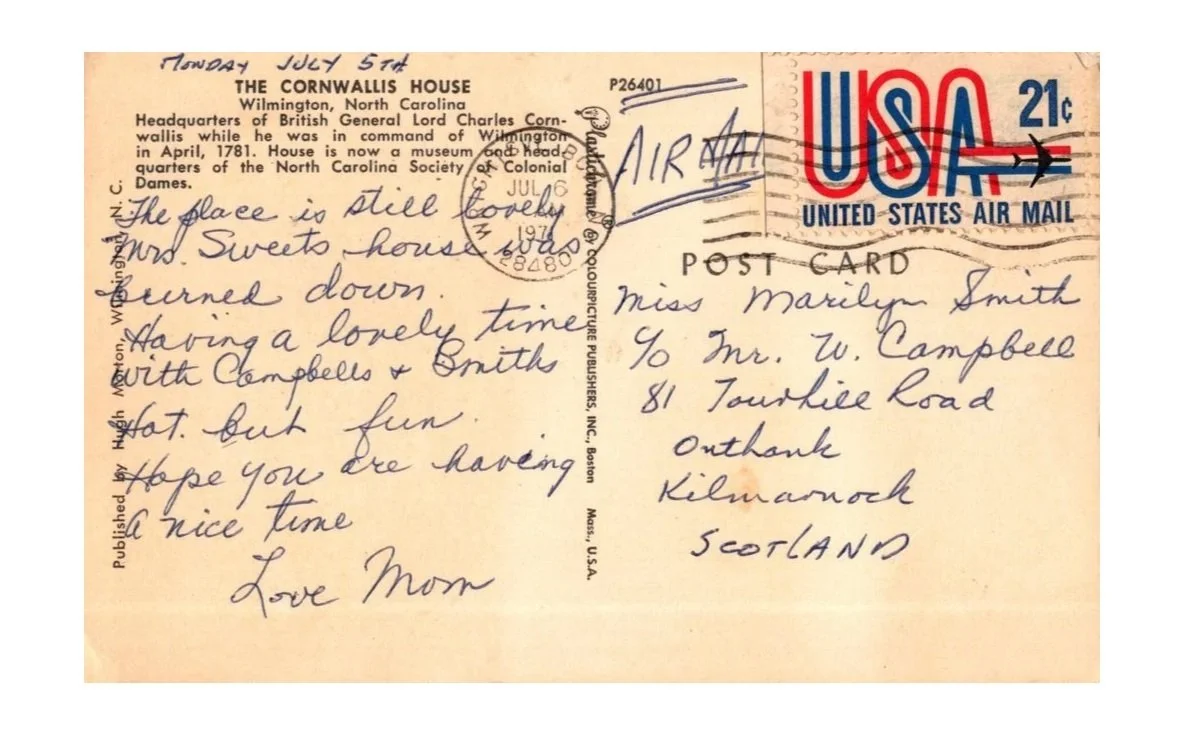 MONDAY JULY 5TH
THE CORNWALLIS HOUSE
Wilmington, North Carolina
Headquarters of British General Lord Charles Corn-
wallis while he was in command of Wilmington
in April, 1781. House is now a museum and head-
quarters of the North Carolina Society of Colonial
Dames.
The place is still lovely
Mrs. Sweets house was
burned down.
Having a lovely time
with Campbells + Smiths
Hot. but fun.
Hope you are having
a nice time
Love Mom
Published by Hugh Morton, Wilmington, N. C.
Plastichrome ® BY COLOURPICTURE PUBLISHERS, INC., Boston Mass., U.S.A.
P26401
AIR MAI
JUL 6
197
28480
USA
21¢
UNITED STATES AIR MAIL
POST CARD
Miss Marilyn Smith
c/o Mr. W. Campbell
81 Tourhill Road
Onthank
Kilmarnock
SCOTLAND